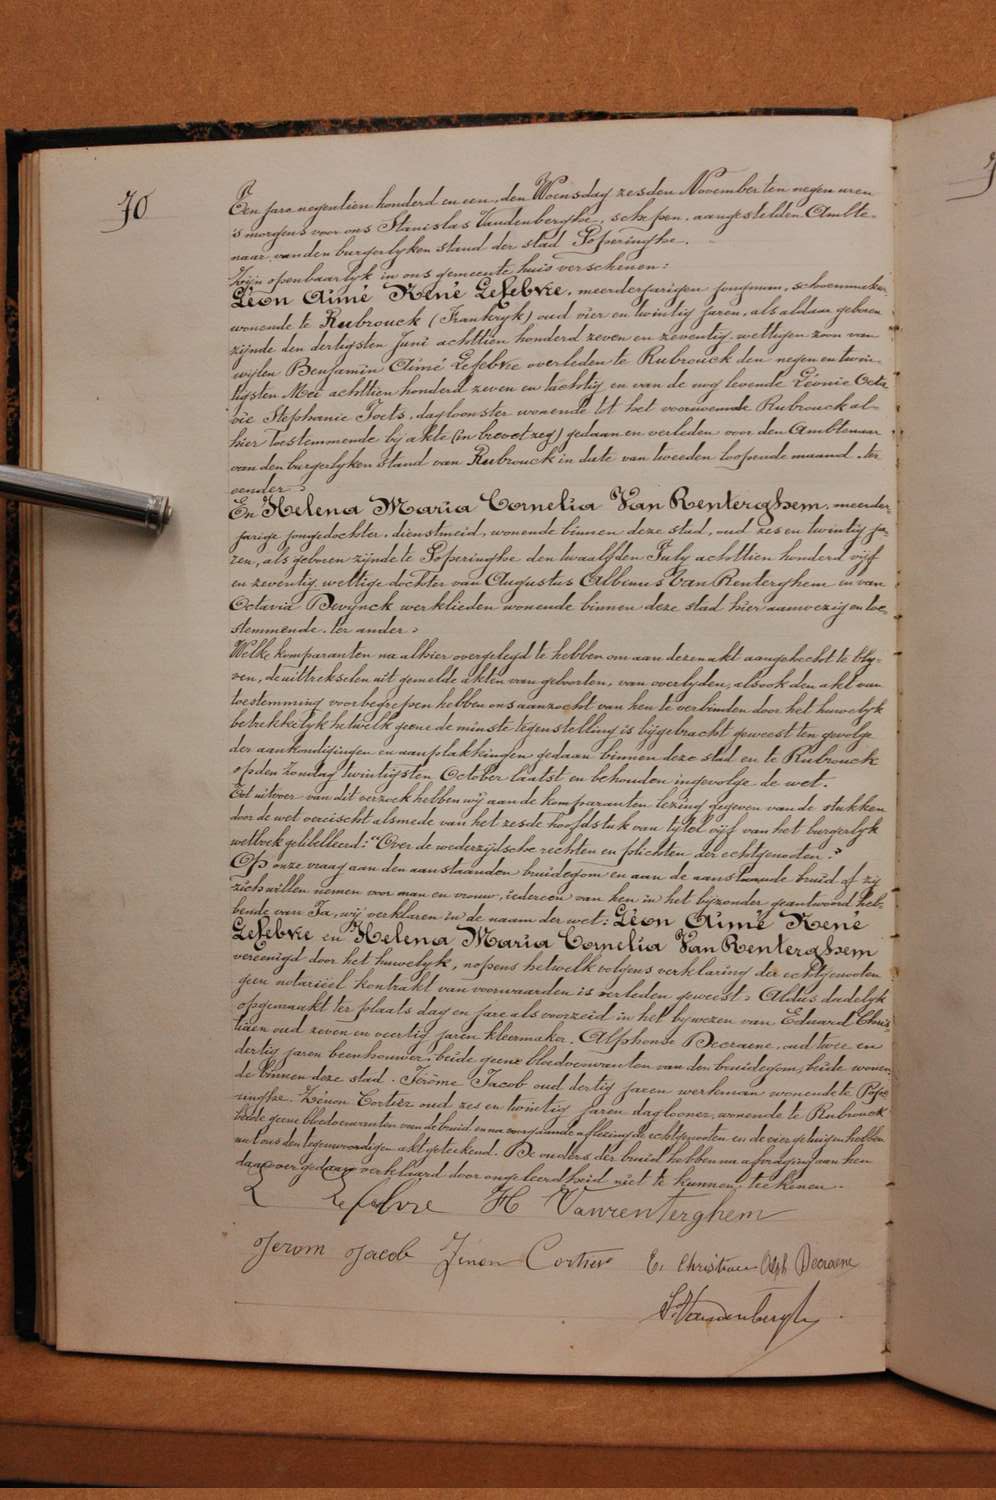 70
Een jare negentien honderd en een, den Woensdag zesden November ten negen uren
is morgens voor ons Stanislas Vandenberghe, schepen, aangestelden Ambte-
naar van den burgerlyken stand der stad Poperinghe.
Zijn openbaarlyk in ons gemeente huis verschenen:
Léon Aimé René Lefebvre, meerderjarigen jongman, schoenmaker
wonende te Rubrouck (Frankryk) oud vier en twintig jaren, als aldaar geboren
zijnde den dertigsten Juni achttien honderd zeven en zeventig, wettigen zoon van
wijlen Benjamin Aimé Lefebvre overleden te Rubrouck den negen en twin-
tigsten Mei achttien honderd zeven en tachtig en van de nog levende Léonie Octa
vie Stéphanie Joets, dagloonster wonende tot het voornoemde Rubrouck al-
hier toestemmende bij akte (in brevet zeg) gedaan en verleden voor den Ambtenaar
van den burgerlyken stand van Rubrouck in date van tweeden loopende maand. ter
eender;
En Helena Maria Cornelia Van Renterghem, meerder-
jarige jongedochter, dienstmeid, wonende binnen deze stad, oud zes en twintig ja-
ren, als geboren zijnde te Poperinghe den twaalfden July achttien honderd vijf
en zeventig, wettige dochter van Augustus Albinus Van Renterghem en van
Octavia Devijnck werklieden wonende binnen deze stad hier aanwezig en toe-
stemmende. ter ander;
Welke komparanten na alhier overgelegd te hebben om aan dezen akt aangehecht te bly-
ven, de uittrekselen uit gemelde akten van geboorten, van overlyden, alsook den akt van
toestemming voorbegrepen hebben ons aanzocht van hen te verbinden door het huwelyk
betrekkelyk hetwelk geene de minste tegenstelling is bijgebracht geweest ten gevolge
der aankondigingen en aanplakkingen gedaan binnen deze stad en te Rubrouck
op den Zondag twintigsten October laatst en behouden ingevolge de wet.
Tot uitvoer van dit verzoek hebben wij aan de komparanten lezing gegeven van de stukken
door de wet vereischt alsmede van het zesde hoofdstuk van tytel vijf van het burgerlyk
wetboek gelibelleerd: "Over de wederzijdsche rechten en plichten der echtgenooten."
Op onze vraag aan den aanstaanden bruidegom en aan de aanstaande bruid of zij
zich willen nemen voor man en vrouw, iedereen van hen in het bijzonder geantwoord heb-
bende van Ja, wij verklaren in de naam der wet: Léon Aimé René
Lefebvre en Helena Maria Cornelia Van Renterghem
vereenigd door het huwelyk, nopens hetwelk volgens verklaring der echtgenooten
geen notariëel kontrakt van voorwaarden is verleden geweest; Aldus dadelyk
opgemaakt ter plaats dag en jare als voorzeid in het bywezen van Eduard Chris-
tiaen oud zeven en veertig jaren kleermaker, Alphonse Decraene, oud twee en
dertig jaren beenhouwer, beide geene bloedverwanten van den bruidegom, beide wonen-
de binnen deze stad. Jérôme Jacob oud dertig jaren werkman wonende te Pope
ringhe. Zénon Cortier oud zes en twintig jaren daglooner, wonende te Rubrouck
beide geene bloedverwanten van de bruid en na voorgaande aflezing de echtgenooten en de vier getuigen hebben
met ons den tegenwoordigen akt geteekend. De ouders der bruid hebben na afvraging aan hen
daarover gedaan verklaard door ongeleerdheid niet te kunnen teekenen.
L Lefebvre H Vanrenterghem
Jerom Jacob Zénon Cortier E. Christiaen Alph Decraene
S. Vandenberghe